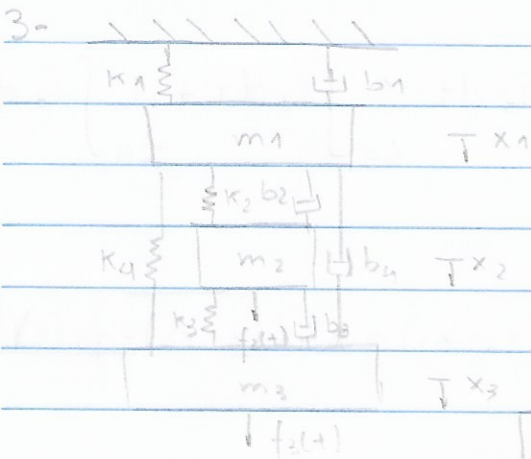 3-
K1 b1
m1 x1
K2 b2
K4 m2 b4 x2
K3 f2(t) b3
m3 x3
f3(t)